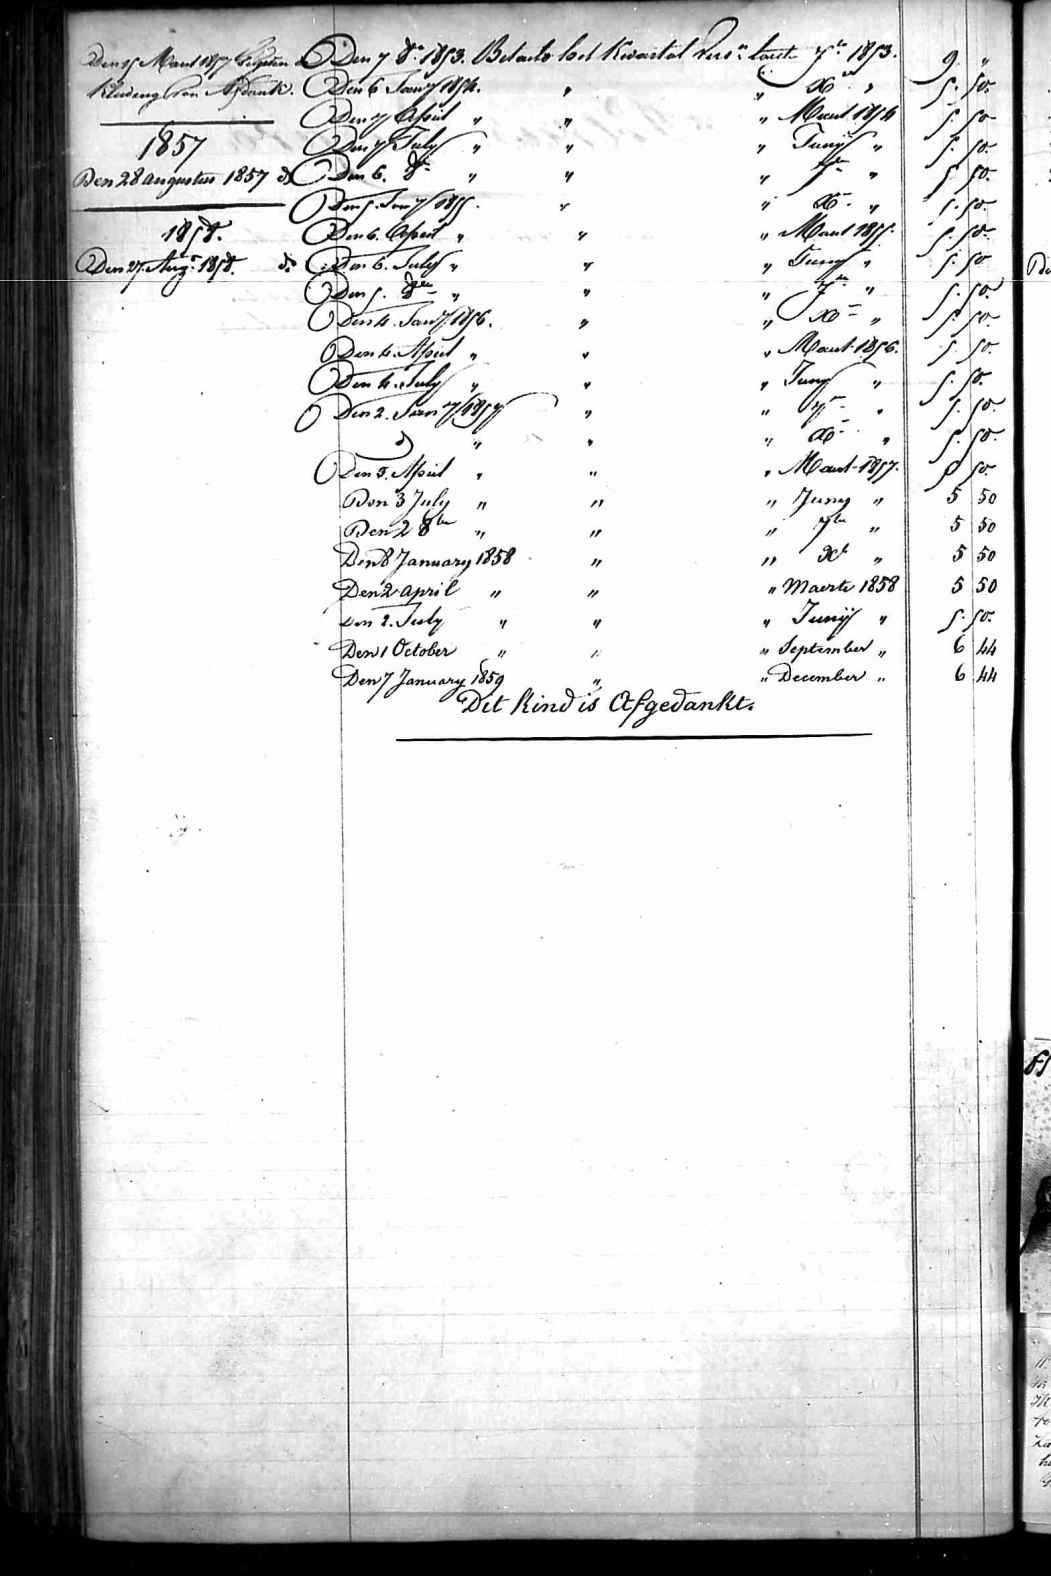 Den 15 Maart 1857
Kleeding van Afdank.
1857
Den 28 augustus 1857 do
1858.
Den 27. Augs 1858. do
Den 7 8r 1853. Betaald het Kwartaal tot 7br 1853. 9. "
Den 6 Jany 1854. " " Xr " 5. 50.
Den 7 April " " " Maart 1854 5. 50
Den 7 July " " " Junij " 5. 50.
Den 6. 8r " " " 7r " 5 50.
Den 5. Jany 1855. " " Xr " 5. 50.
Den 6. April " " " Maart 1855. 5. 50.
Den 6. July " " " Junij " 5. 50
Den 5. 8br " " " 7r " 5. 50.
Den 4. Jany 1856. " " Xr " 5. 50.
Den 4. April " " " Maart 1856. 5. 50.
Den 4. July " " " Juny " 5. 50.
Den 2. Jany 1857 " " 7r " 5. 50.
do " " " Xr " 5. 50.
Den 3. April " " " Maart 1857. 5 50.
Den 3 July " " " Juny " 5 50
Den 2 8br " " " 7br " 5 50
Den 8 January 1858 " " Xb " 5 50
Den 2 april " " " Maerte 1858 5 50
Den 2. July " " " Junij " 5. 50.
Den 1 October " " " September " 6 44
Den 7 January 1859 " " December " 6 44
Dit kind is Afgedankt.